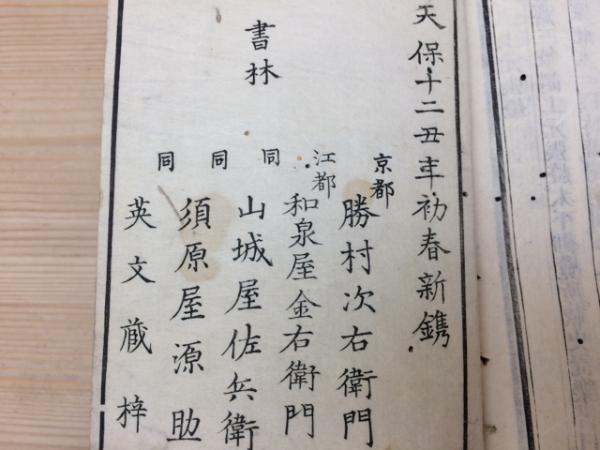 天保十二丑年初春新鐫
京都 勝村次右衛門
江都 和泉屋金右衛門
同 山城屋佐兵衛
同 須原屋源助
同 英文蔵梓
書林